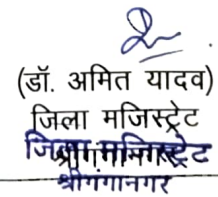 (डॉ. अमित यादव)
जिला मजिस्ट्रेट
श्रीगंगानगर
जिला मजिस्ट्रेट
श्रीगंगानगर